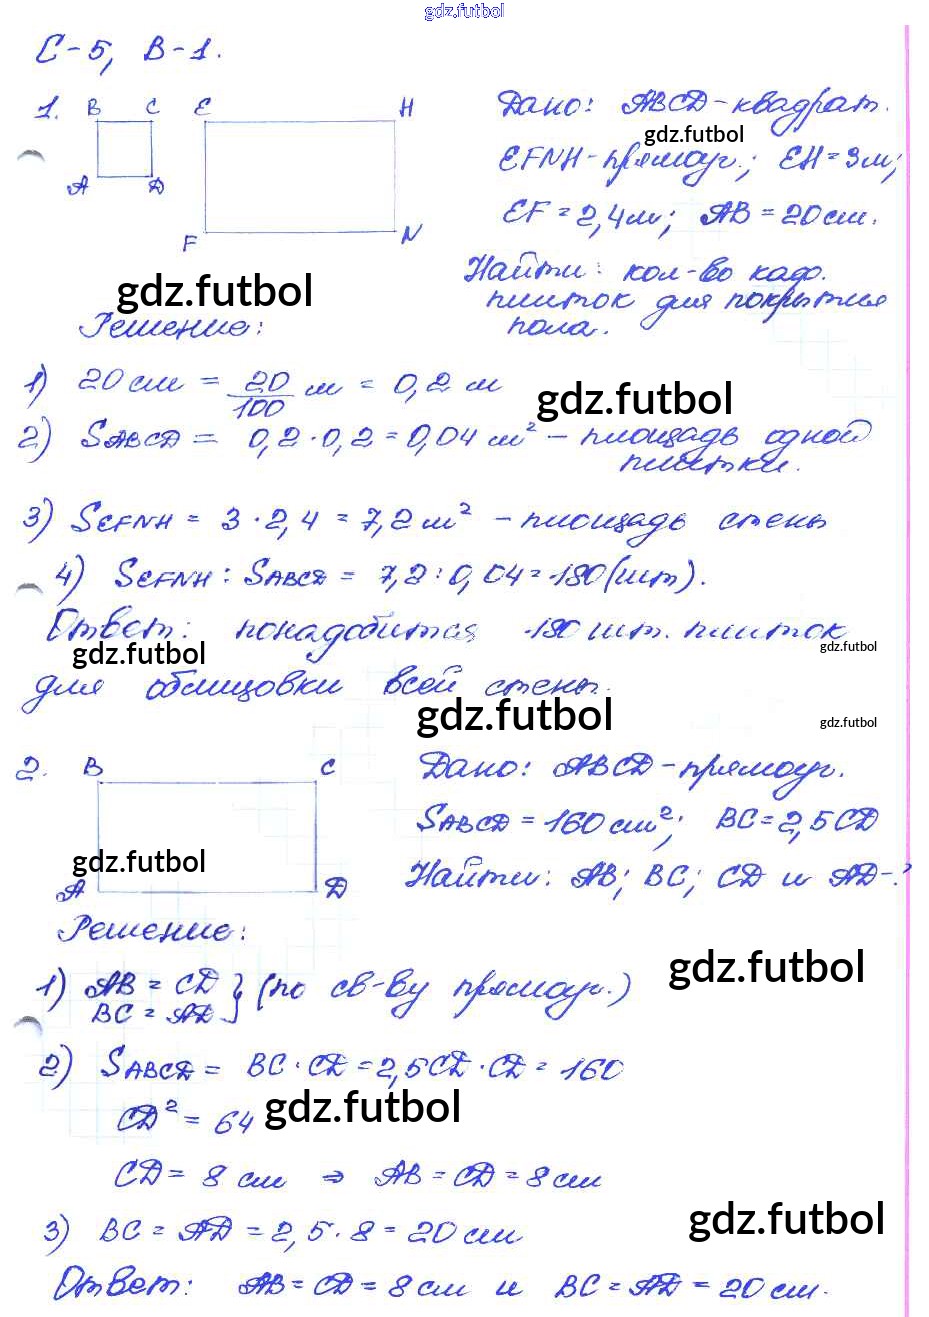 gdz.futbol
С-5, В-1.
1. B C E H
A D
F N
Дано: ABCD-квадрат.
gdz.futbol
EFNH-прямоуг.; EH=3м;
EF=2,4м; AB=20см.
Найти: кол-во каф.
плиток для покрытия
пола.
gdz.futbol
Решение:
1) 20см = 20/100 м = 0,2 м
gdz.futbol
2) SABCD = 0,2·0,2=0,04 м² - площадь одной
плитки.
3) SEFNH = 3·2,4=7,2м² - площадь стены
4) SEFNH : SABCD = 7,2:0,04=180(шт).
Ответ: понадобится 180 шт. плиток
gdz.futbol
gdz.futbol
для облицовки всей стены.
gdz.futbol
gdz.futbol
2. B C
A D
Дано: ABCD-прямоуг.
SABCD=160см²; BC=2,5CD
gdz.futbol
Найти: AB; BC; CD и AD-?
Решение:
gdz.futbol
1) AB = CD
BC = AD } (по св-ву прямоуг.)
2) SABCD = BC·CD=2,5CD·CD=160
CD²=64
gdz.futbol
CD=8 см ⇒ AB=CD=8см
gdz.futbol
3) BC=AD=2,5·8=20см
Ответ: AB=CD=8см и BC=AD=20см.